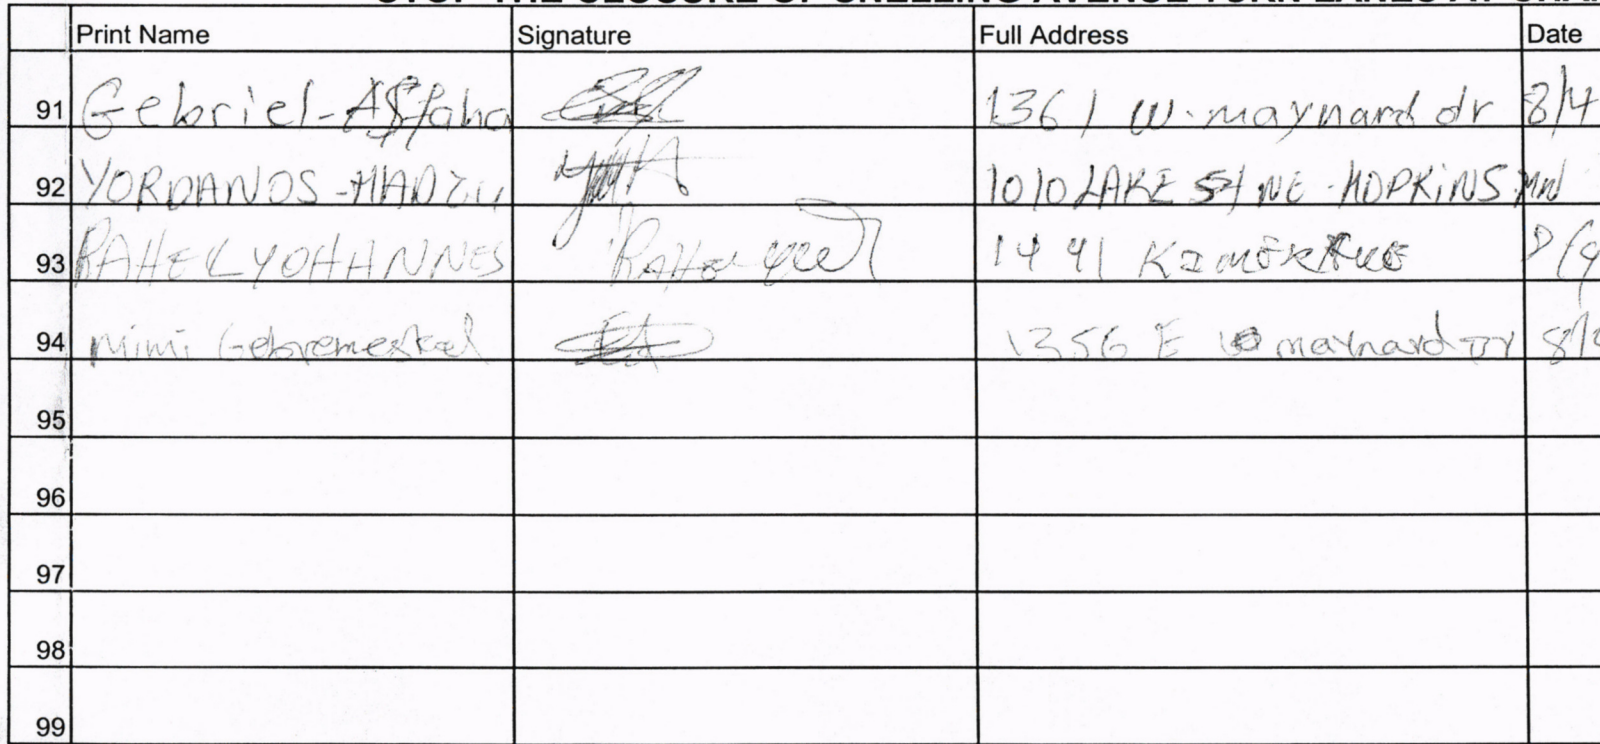 Print Name Signature Full Address Date
91 Gebriel-Asfaha 1361 W. maynard dr 8/4
92 YORDANOS - 1010 LAKE St NE - HOPKINS MN
93 RAHEL YOHANNES Rahel 1441
94 Mimi Gebremeskel 1356 E maynard Dr 8/
95
96
97
98
99